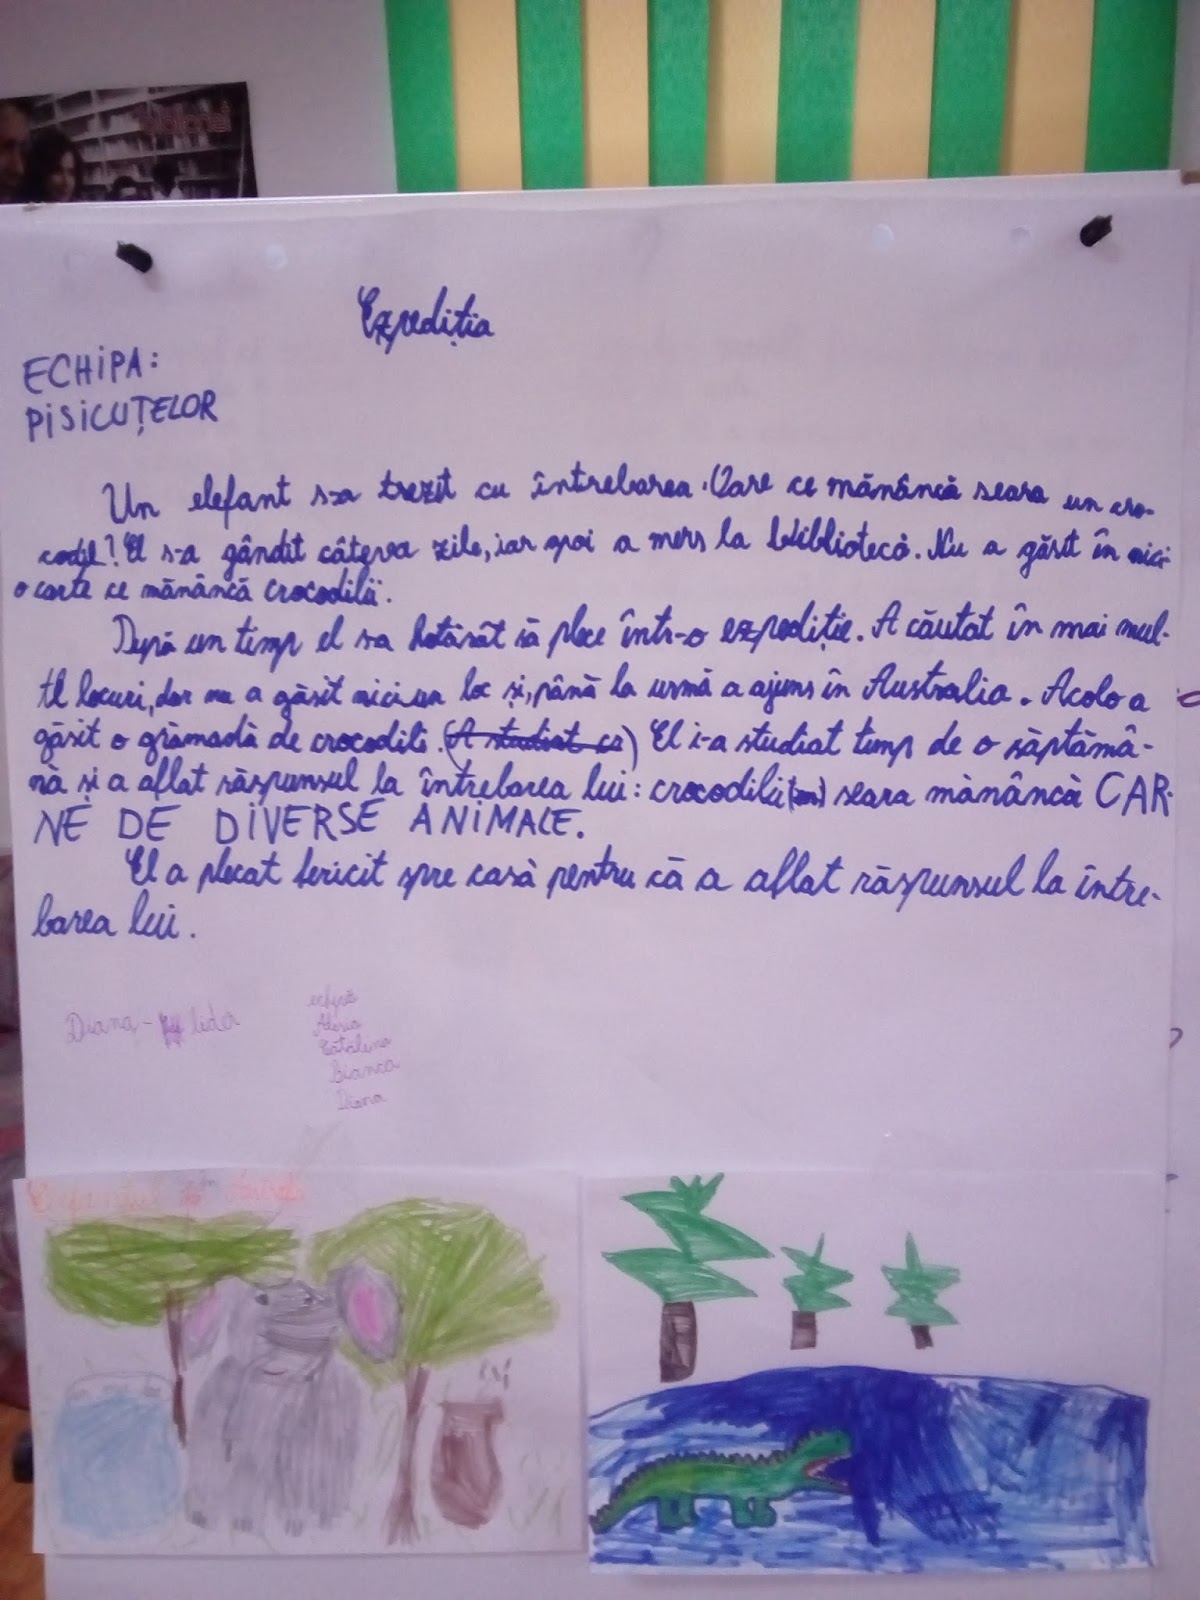 Expediția
ECHIPA:
PISICUȚELOR
Un elefant s-a trezit cu întrebarea. Oare ce mănâncă seara un cro-
codil? El s-a gândit câteva zile, iar apoi a mers la bibliotecă. Nu a găsit în nici
o carte ce mănâncă crocodilii.
După un timp el s-a hotărât să plece într-o expediție. A căutat în mai mul-
te locuri, dar nu a găsit niciun loc și, până la urmă a ajuns în Australia. Acolo a
găsit o grămadă de crocodili. (A studiat ca) El i-a studiat timp de o săptămâ-
nă și a aflat răspunsul la întrebarea lui: crocodilii seara mănâncă CAR-
NE DE DIVERSE ANIMALE.
El a plecat fericit spre casă pentru că a aflat răspunsul la între-
barea lui.
Diana - lider
echipă
Catălina
Bianca
Diana
Elefantul